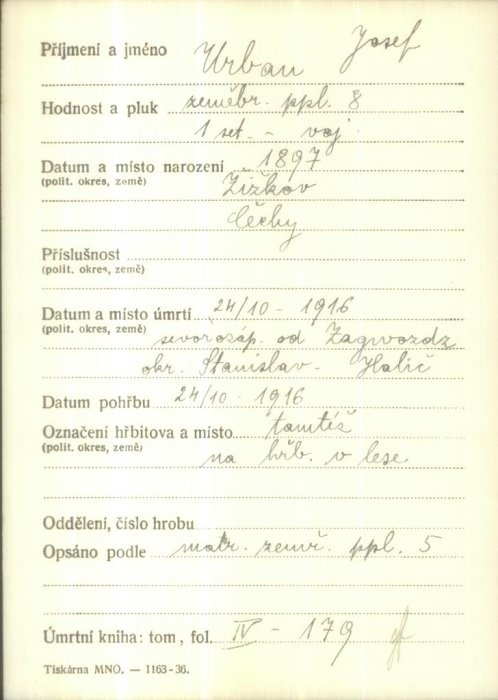 Příjmení a jméno Urban Josef
Hodnost a pluk zeměbr. ppl. 8
1 set. - voj.
Datum a místo narození 1897
(polit. okres, země) Žižkov
Čechy
Příslušnost
(polit. okres, země)
Datum a místo úmrtí 24/10 - 1916
(polit. okres, země) severozáp. od Zagwozdz
okr. Stanislav - Halič
Datum pohřbu 24/10 - 1916
Označení hřbitova a místo tamtéž
(polit. okres, země) na hřb. v lese
Oddělení, číslo hrobu
Opsáno podle matr. zemř. ppl. 5
Úmrtní kniha: tom, fol. IV - 179
Tiskárna MNO. — 1163-36.